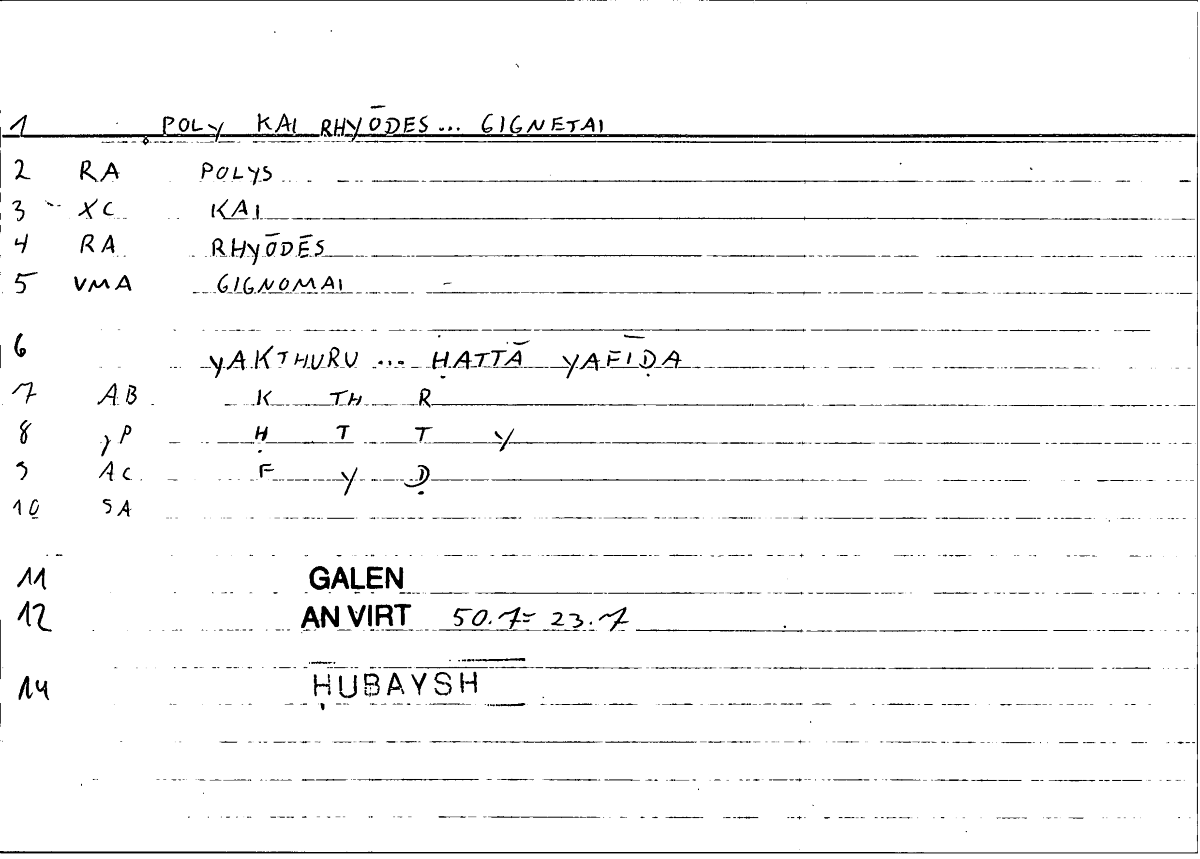 1 POLY KAI RHYŌDES... GIGNETAI
2 RA POLYS
3 XC KAI
4 RA RHYŌDĒS
5 VMA GIGNOMAI
6 YAKTHURU ... ḤATTĀ YAFĪḌA
7 AB K TH R
8 P Ḥ T T Y
9 AC F Y Ḍ
10 SA
11 GALEN
12 AN VIRT 50.7= 23.7
14 ḤUBAYSH